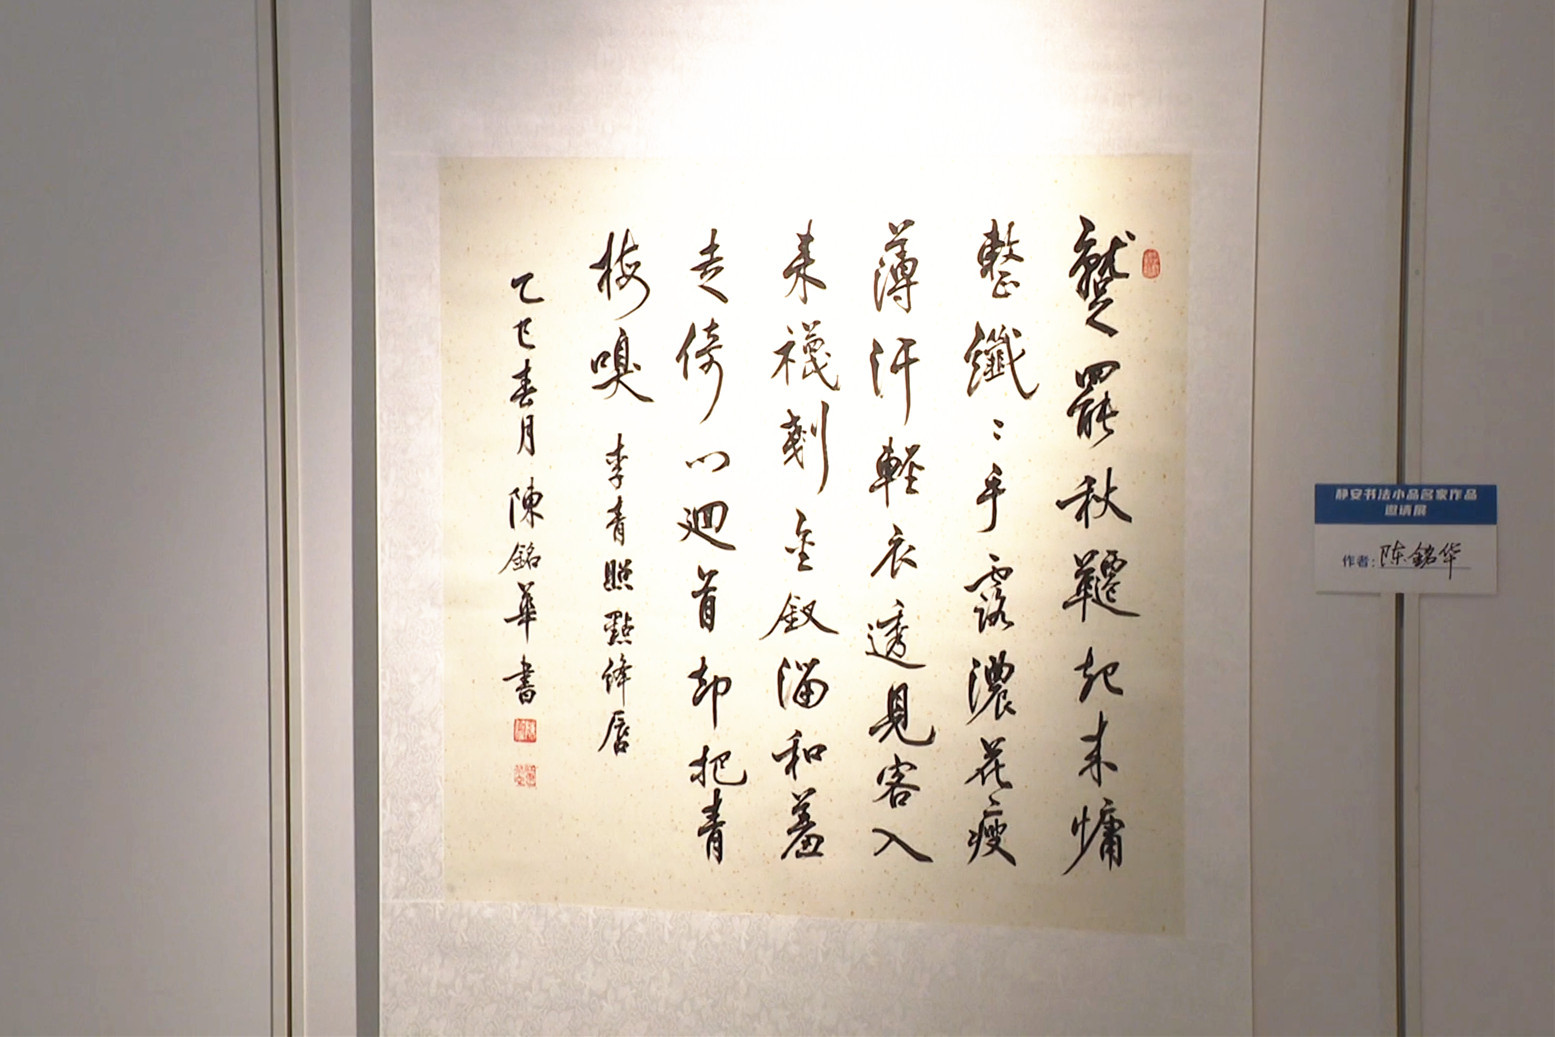 蹵罷秋韆起来慵
整纖〻手露濃花瘦
薄汗軽衣透見客入
来襪剗金釵溜和羞
走倚门迴首却把青
梅嗅 李青照點絳唇
乙巳春月陳銘華書
静安书法小品名家作品
邀请展
作者:陈銘华